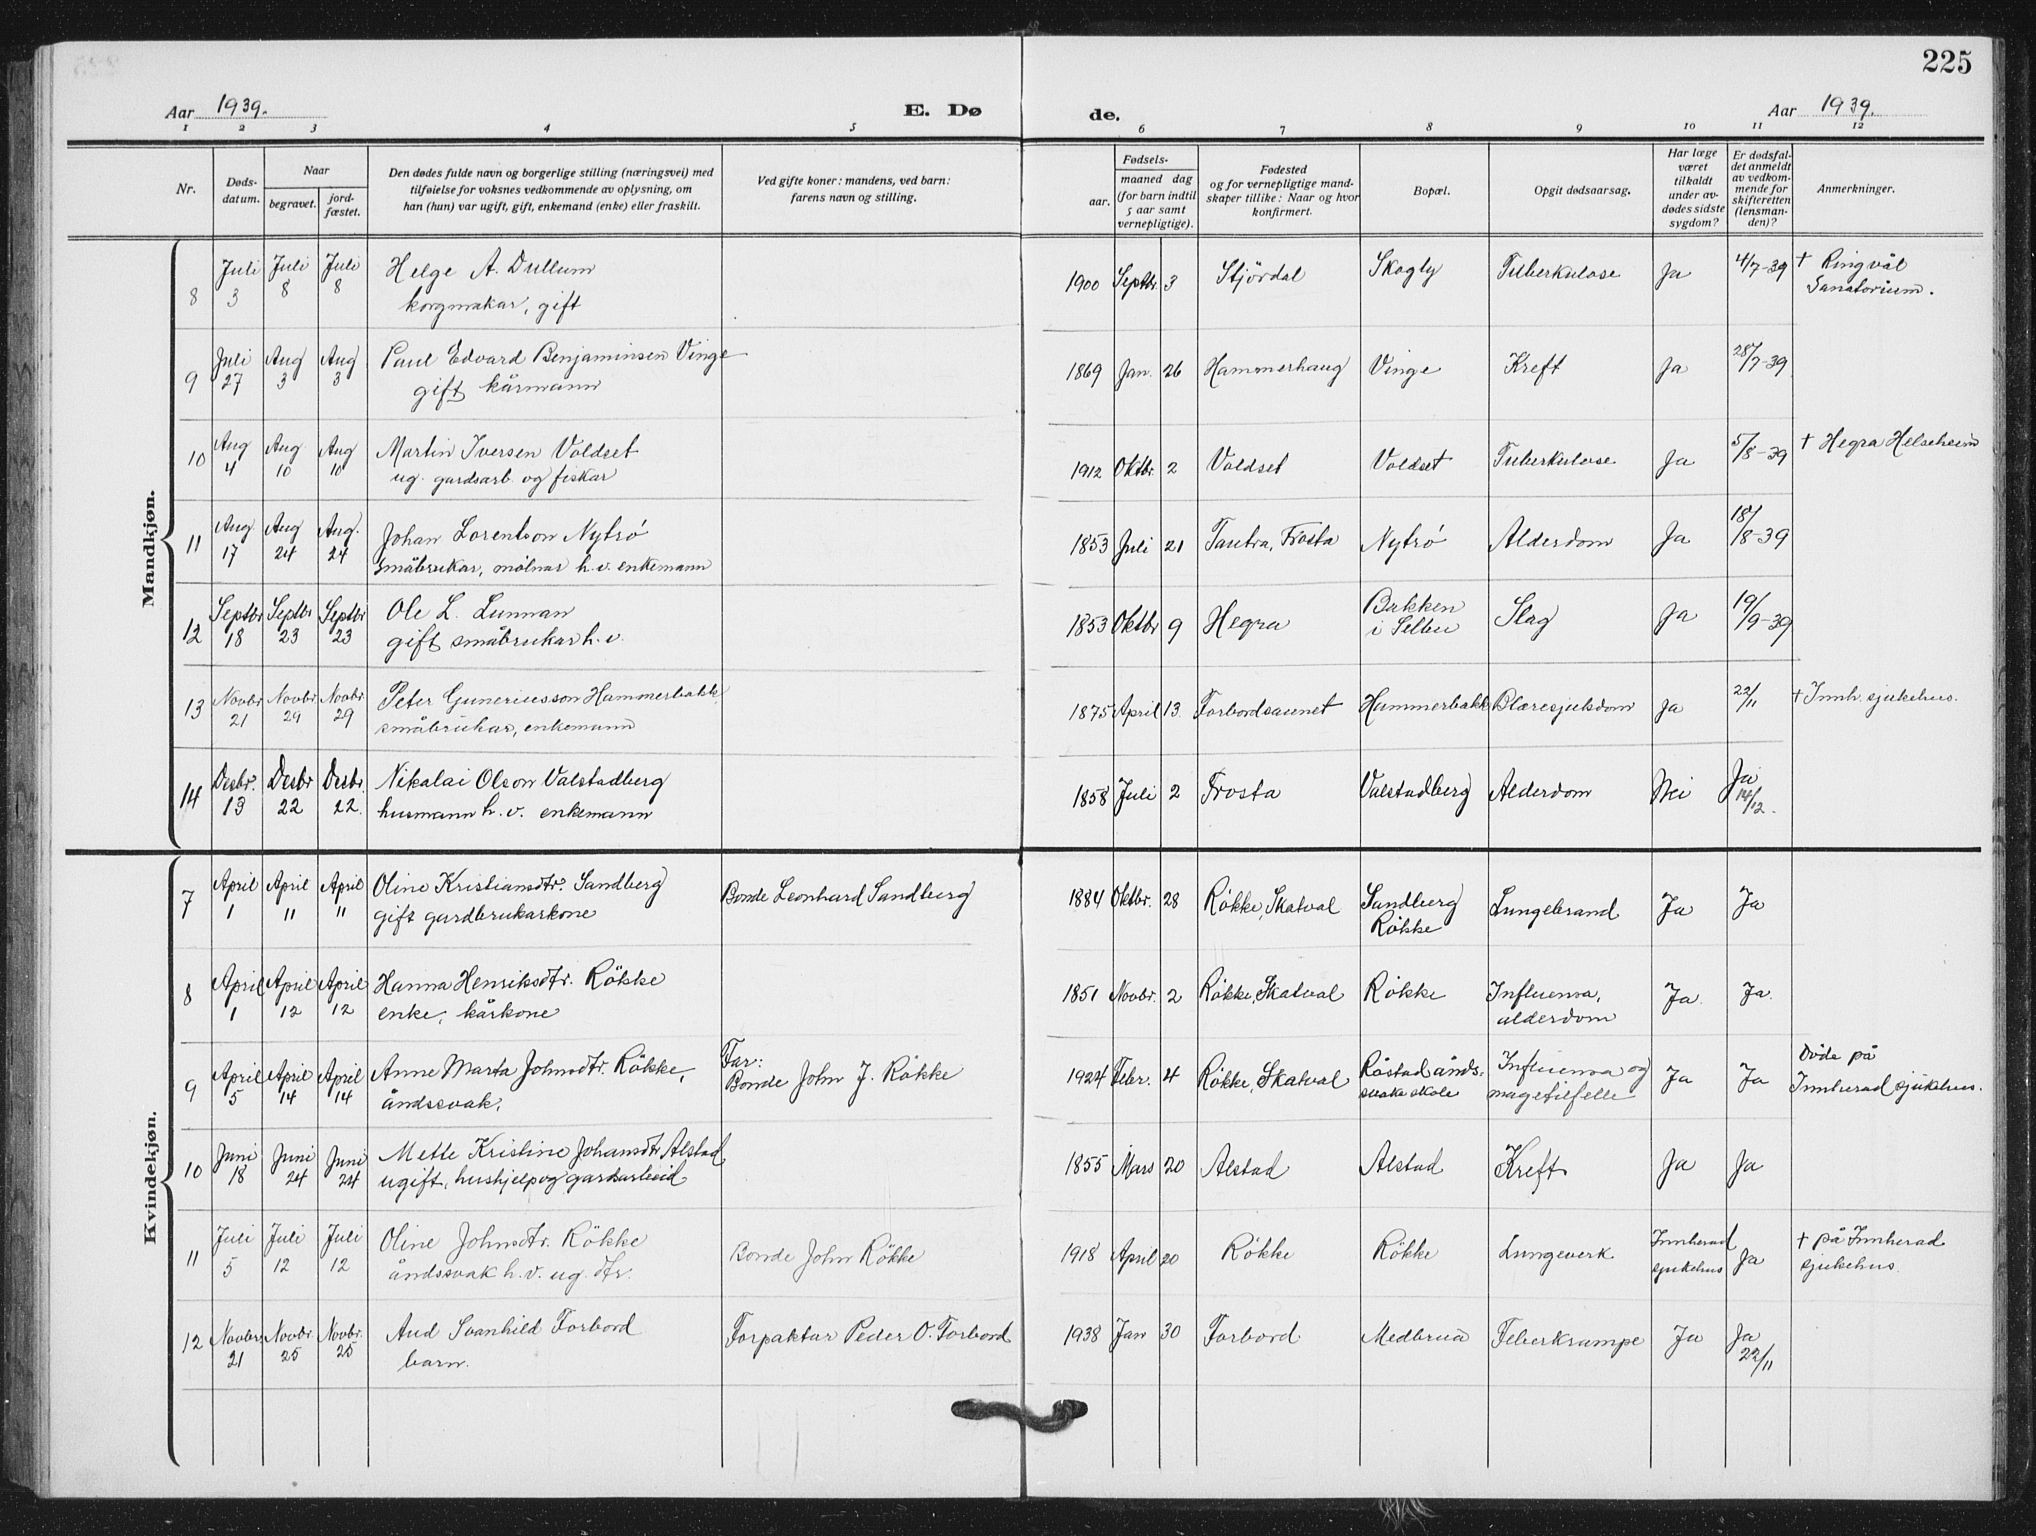 225
Aar 1939.
E. Dø
de.
Aar 1939.
1 2 3 4 5 6 7 8 9 10 11 12
Nr.
Døds-
datum.
Naar
begravet.
jord-
fæstet.
Den dødes fulde navn og borgerlige stilling (næringsvei) med
tilføielse for voksnes vedkommende av oplysning, om
han (hun) var ugift, gift, enkemand (enke) eller fraskilt.
Ved gifte koner: mandens, ved barn:
farens navn og stilling.
Fødsels-
aar.
maaned dag
(for barn indtil
5 aar samt
vernepligtige).
Fødested
og for vernepligtige mand-
skaper tillike: Naar og hvor
konfirmert.
Bopæl.
Opgit dødsaarsag.
Har læge
været
tilkaldt
under av-
dødes sidste
sygdom?
Er dødsfal-
det anmeldt
av vedkom-
mende for
skifteretten
(lensman-
den)?
Anmerkninger.
Mandkjøn.
8 Juli 3 Juli 8 Juli 8 Helge A. Dullum
korgmakar, gift
1900 Septbr. 3 Stjördal Skogly Tuberkulose Ja 4/7-39 † Ringvål
Sanatorium.
9 Juli 27 Aug 3 Aug 3 Paul Edvard Benjaminsen Vinge
gift kårmann
1869 Jan. 26 Hammerhaug Vinge Kreft Ja 28/7-39
10 Aug 4 Aug 10 Aug 10 Martin Iversen Voldset
ug. gardsarb. og fiskar
1912 Oktbr 2 Voldset Voldset Tuberkulose Ja 5/8-39 † Hegra Helseheim
11 Aug 17 Aug 24 Aug. 24 Johan Lorentson Nytrø
småbrukar, mølnar h.v. enkemann
1853 Juli 21 Tautra, Frosta Nytrø Alderdom Ja 18/8-39
12 Septbr 18 Septbr 23 Septbr 23 Ole L. Lunnan
gift småbrukar h.v.
1853 Oktbr 9 Hegra Bakken
i Selbu Slag Ja 19/9-39
13 Novbr 21 Novbr 29 Novbr 29 Peter Guneriusson Hammerbakk,
småbrukar, enkemann
1875 April 13 Forbordsaunet Hammerbakk Blæresjukdom Ja 22/11 † Innh. sjukehus.
14 Desbr. 13 Desbr 22 Desbr. 22. Nikolai Olson Valstadberg
husmann h.v. enkemann
1858 Juli 2 Frosta Valstadberg Alderdom Nei Ja 14/12.
Kvindekjøn.
7 April 1 April 11 April 11 Oline Kristiansdtr. Sandberg
gift gardbrukarkone
Bonde Leonhard Sandberg
1884 Oktbr. 28 Røkke, Skatval Sandberg
Røkke Lungebrand Ja Ja
8 April 1 April 12 April 12 Hanna Henriksdtr. Rökke
enke, kårkone
1851 Novbr. 2 Røkke, Skatval Røkke Influensa,
alderdom Ja. Ja.
9 April 5 April 14 April 14 Anne Marta Johnsdtr. Røkke,
åndssvak.
Far:
Bonde John J. Røkke
1924 Febr. 4 Røkke, Skatval Røstad ånds-
svake skole Influensa og
magetilfelle Ja Ja Døde på
Innherad sjukehus.
10 Juni 18 Juni 24 Juni 24 Mette Kristine Johansdtr Alstad
ugift, hushjelp og gardsarbeid
1855 Mars 20 Alstad Alstad Kreft Ja Ja
11 Juli 5 Juli 12 Juli 12 Oline Johnsdtr. Rökke
åndssvak h.v. ug. dtr.
Bonde John Røkke
1918 April 20 Røkke Røkke Lungeverk Innherad
sjukehus Ja † på Innherad
sjukehus.
12 Novbr. 21 Novbr 25 Novbr. 25 Aud Svanhild Forbord
barn.
Forpaktar Peder O. Forbord
1938 Jan 30 Forbord Medbrua Feberkrampe Ja Ja
22/11